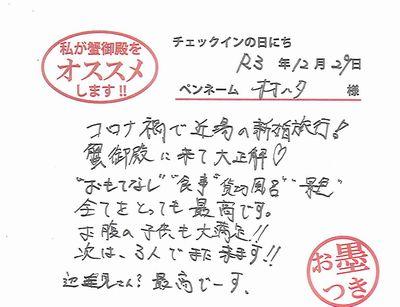 私が蟹御殿を
オススメ
します!!
チェックインの日にち
R3 年 12 月 29 日
ペンネーム 様
コロナ禍で近場の新婚旅行!
蟹御殿に来て大正解♡
"おもてなし" "食事" "貸切風呂" "景色"
全てをとっても最高です。
お腹の子供も大満足!!
次は、3人でまた来ます!!
最高でーす。
お墨
つき